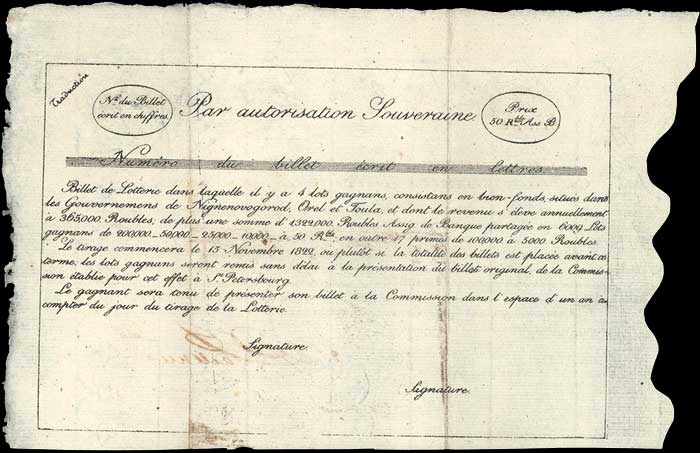 Traduction
No. du Billet
écrit en chiffres
Par autorisation Souveraine
Prix
50 Rbls As. B.
Numéro du billet écrit en lettres
Billet de Lotterie dans laquelle il y a 4 lots gagnans, consistans en bien-fonds, situés dans
les Gouvernemens de Nignenovogorod, Orel et Toula, et dont le revenu s'éleve annuellement
à 365,000 Roubles, de plus une somme d'1322,000 Roubles Assig de Banque partagée en 6009 Lots
gagnans de 200,000—50,000—25,000—10,000—à 50 Rbls, en outre 17 primes de 100,000 à 5000 Roubles.
Le tirage commencera le 15 Novembre 1822, ou plutôt si la totalité des billets est placée avant ce
terme, les lots gagnans seront remis sans délai à la présentation du billet original, de la Commis-
sion établie pour cet effet à St. Petersbourg.
Le gagnant sera tenu de présenter son billet à la Commission dans l'espace d'un an à
compter du jour du tirage de la Lotterie.
Signature.
Signature.